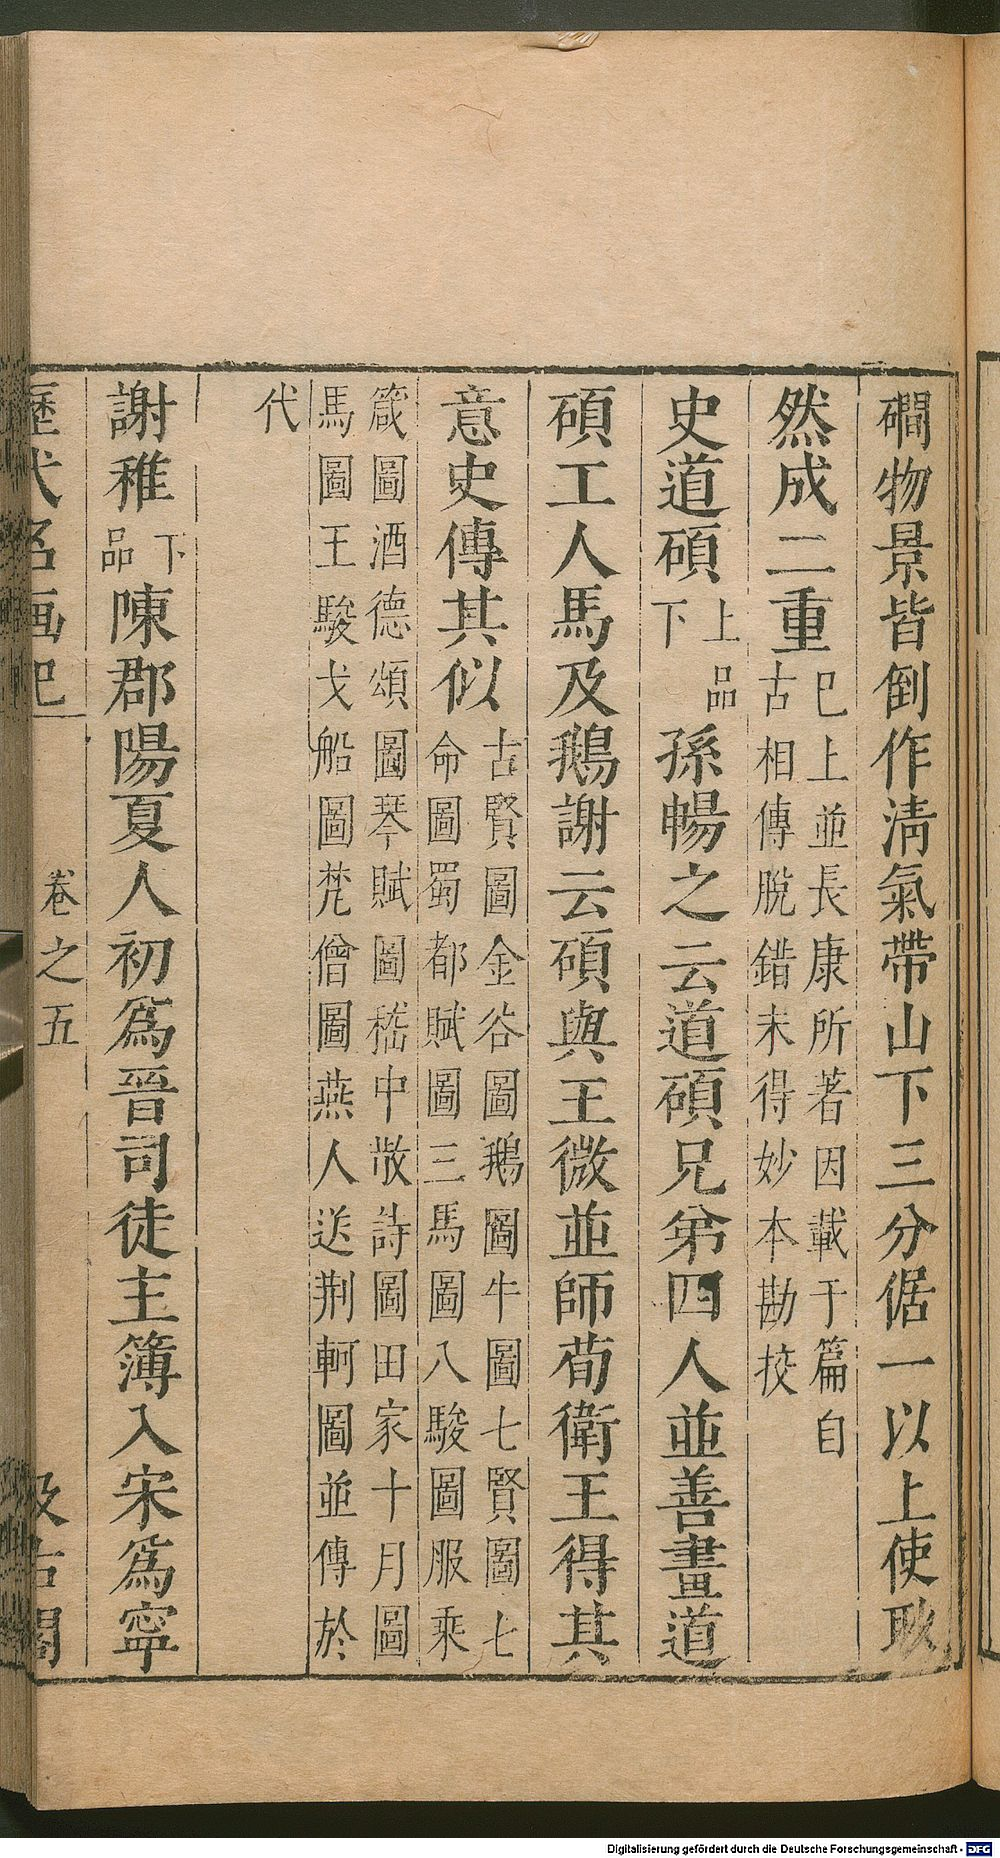 磵物景皆倒作清氣帶山下三分倨一以上使耿
然成二重巳上並長康所著因載于篇自
古相傳脫錯未得妙本勘挍
史道碩上品
下
孫暢之云道碩兄弟四人並善畫道
碩工人馬及鵝謝云碩與王微並師荀衛王得其
意史傳其似古賢圖金谷圖鵝圖牛圖七賢圖七
命圖蜀都賦圖三馬圖八駿圖服乘
箴圖酒德頌圖琴賦圖嵇中散詩圖田家十月圖
馬圖王駿戈船圖梵僧圖燕人送荆軻圖並傳於
代
謝稚下
品
陳郡陽夏人初爲晉司徒主簿入宋爲寧
歷代名画記
卷之五
汲古閣
Digitalisierung gefördert durch die Deutsche Forschungsgemeinschaft - DFG